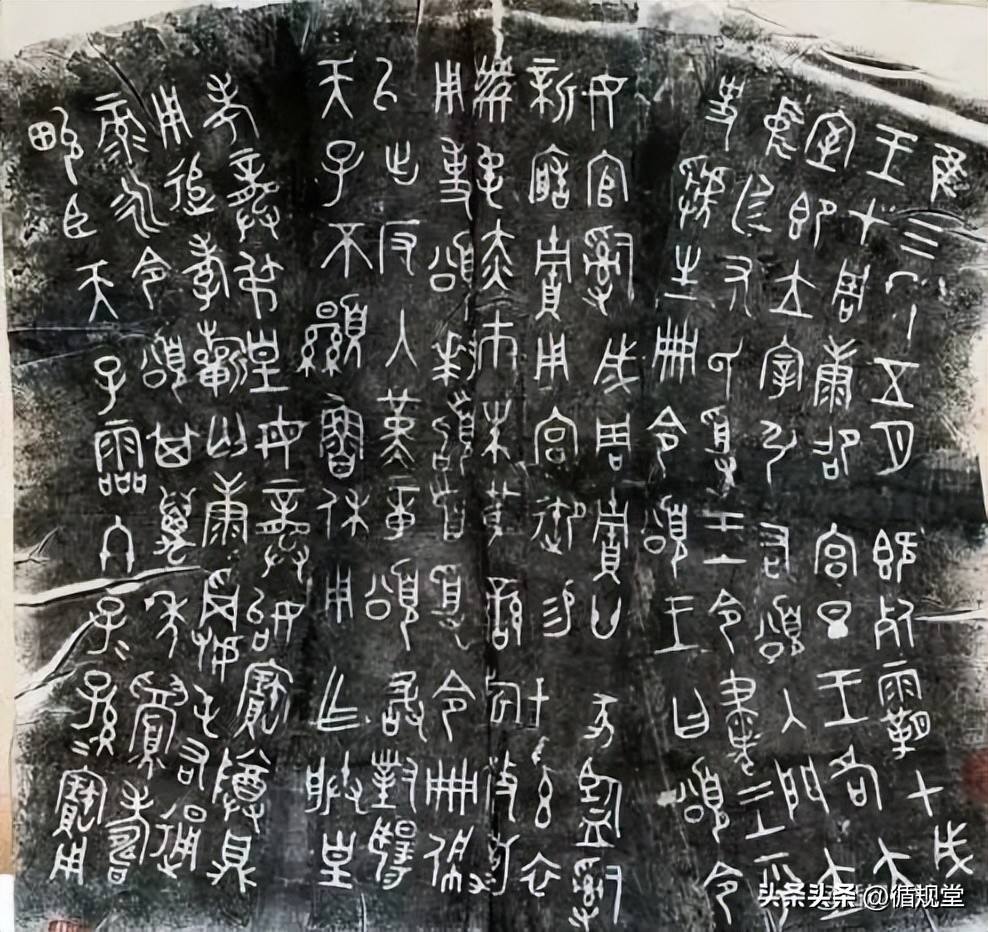 隹三年五月既死霸甲戌
王才周康邵宮旦王各大
室即立宰引右頌入門立
中廷尹氏受王令書王乎
史虢生冊令頌王曰頌令
女官𤔲成周貯廿家監𤔲
新造貯用宮御易女玄衣
黹屯赤巿朱黃鑾旂攸勒
用事頌拜稽首受令冊佩
以出反入堇章頌敢對揚
天子不顯魯休用乍朕皇
考龔弔皇母龔始寶尊鼎
用追孝祈匄康𢆶屯右通
彔永令頌其萬年眉壽
畯臣天子霝冬子〻孫〻寶用
头条头条 @循规堂